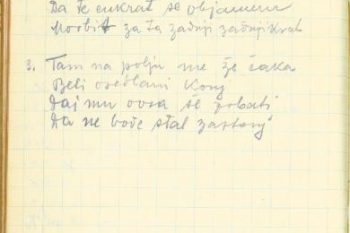 Da te enkrat še objamem
Morbit za ta zadnji zadnjikrat
3. Tam na polju me že čaka
Beli osedlani konj
Daj mu ovsa še zobati
Da ne bože stal zastonj